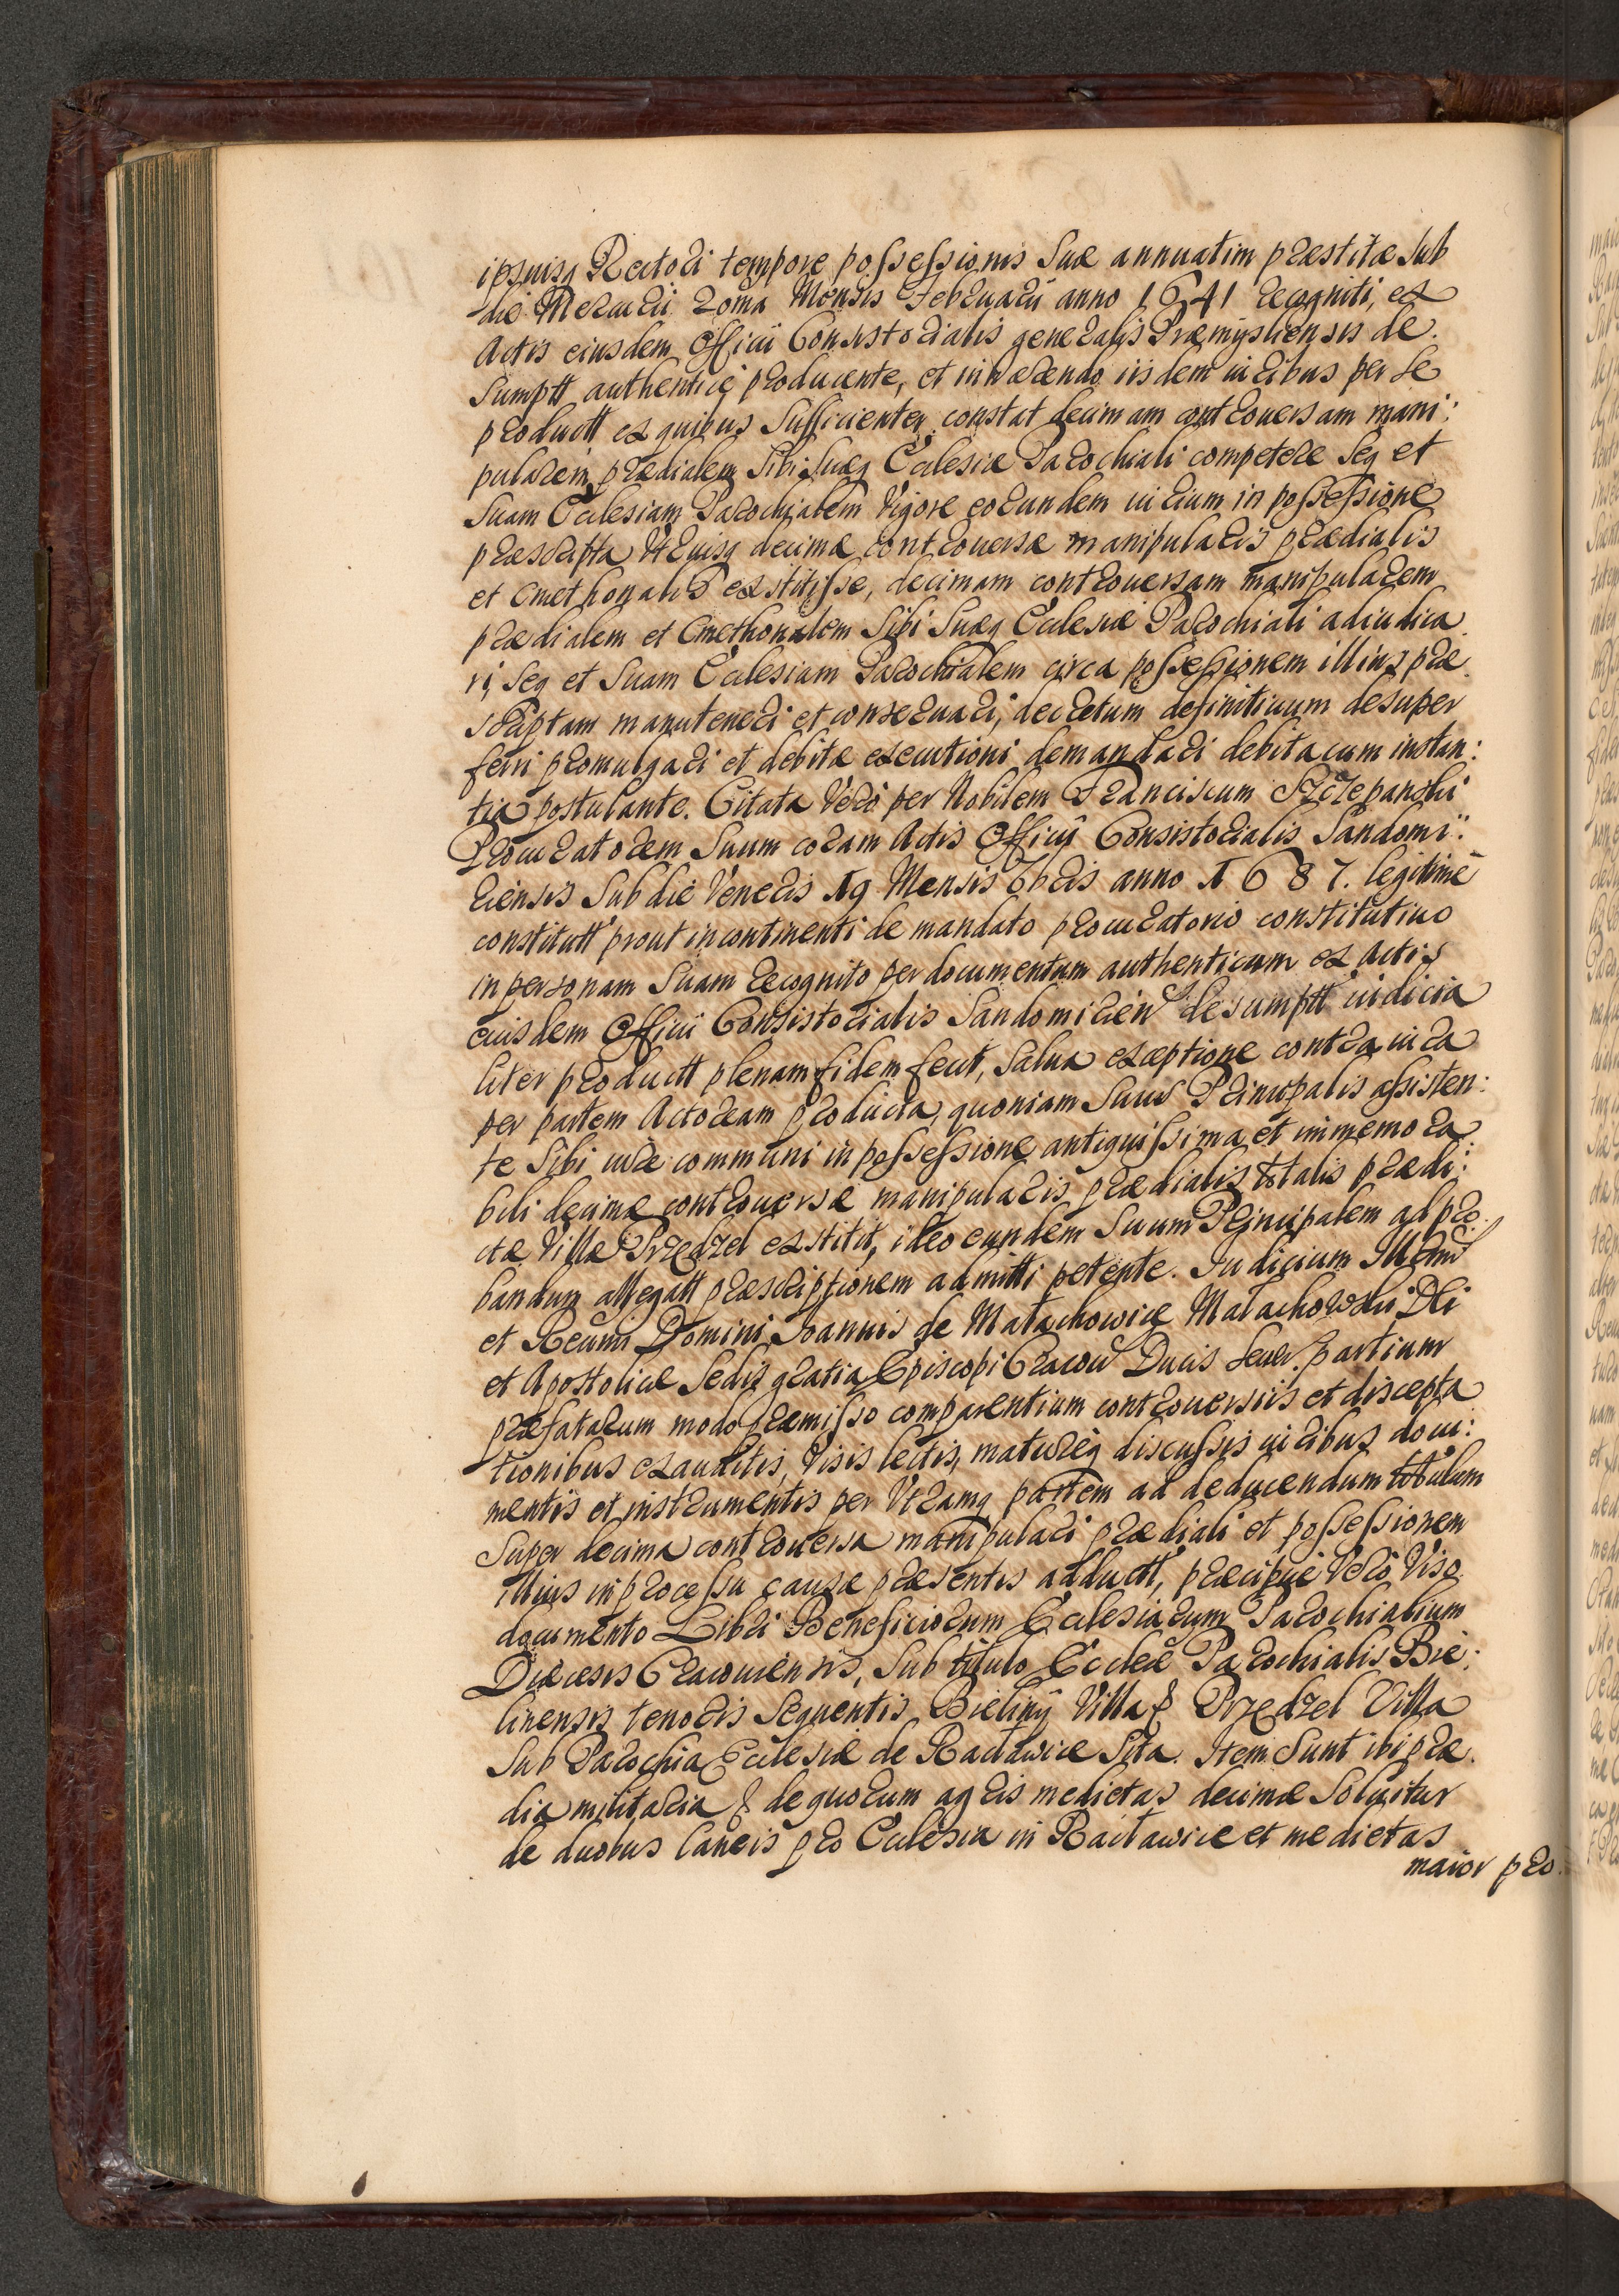 ipsiusq Rectori tempore possessionis suæ annuatim præstitæ sub
die Mercurii 20ma Mensis Februarii anno 1641 recogniti, ex
Actis eiusdem Officii Consistorialis generalis Præmysliensis de:
sumptt authenticè producente, et inhærendo iisdem iuribus per se
productt ex quibus sufficienter constat decimam controuersam mani:
pularem prædialem sibi suæq Ecclesiæ Parochiali competere seq et
suam Ecclesiam Parochialem Vigore eorundem iurium in possessione
præscripta Vtriusq decimæ controuersæ manipularis prædialis
et Cmethonalis exstitisse, decimam controuersam manipularem
prædialem et Cmethonalem sibi suæq Ecclesiæ Parochiali adiudica
ri, seq et suam Ecclesiam Parochialem circa possessionem illius præ
scriptam manuteneri et conseruari, decretum definitiuum desuper
ferri promulgari et debitæ executioni demandari debita cum instan:
tia postulante. Citata Verò per Nobilem Franciscum Szczepanski
Procuratorem suum coram Actis Officij Consistorialis Sandomi:
riensis sub die Veneris 19 Mensis 7bris anno 1687. legitimè
constitutt prout in continenti de mandato procuratorio constitutiuo
in personam suam recognito per documentum authenticum ex Actis
eiusdem Officii Consistorialis Sandomirien desumptt iudicia
liter productt plenam fidem fecit, salua exceptione contra iura
per partem Actoream producta, quoniam suus Principalis assisten:
te sibi iure communi in possessione antiquissima et immemora
bili decimæ controuersæ manipularis prædialis totalis prædi:
ctæ Villæ Przedzel exstitit, ideo eundem suum Principalem ad pro:
bandum allegatt præscriptionem admitti petente. Iudicium Illrmi
et Reumi Domini Joannis de Małachowice Małachowski Dei
et Apostolicæ Sedis gratia Episcopi Cracou Ducis Seuer. partium
præfatarum modo præmisso comparentium controuersiis et discepta
tionibus exauditis, Visis lectis, maturèq discussis iuribus docu:
mentis et instrumentis per Vtramq partem ad deducendum titulum
super decima controuersa manipulari prædiali et possessionem
illius in processu causæ præsentis adductt, præcipuè Verò Viso
documento Libri Beneficiorum Ecclesiarum Parochialium
Diæcesis Cracouiensis, sub titulo Ecclæ Parochialis Bie:
linensis tenoris sequentis Bieliny Villa & Przedzel Villa
sub Parochia Ecclesiæ de Racławice sita. Item sunt ibi præ
dia militaria & de quorum agris medietas decimæ soluitur
de duobus laneis pro Ecclesia in Racławice et medietas
maior pro